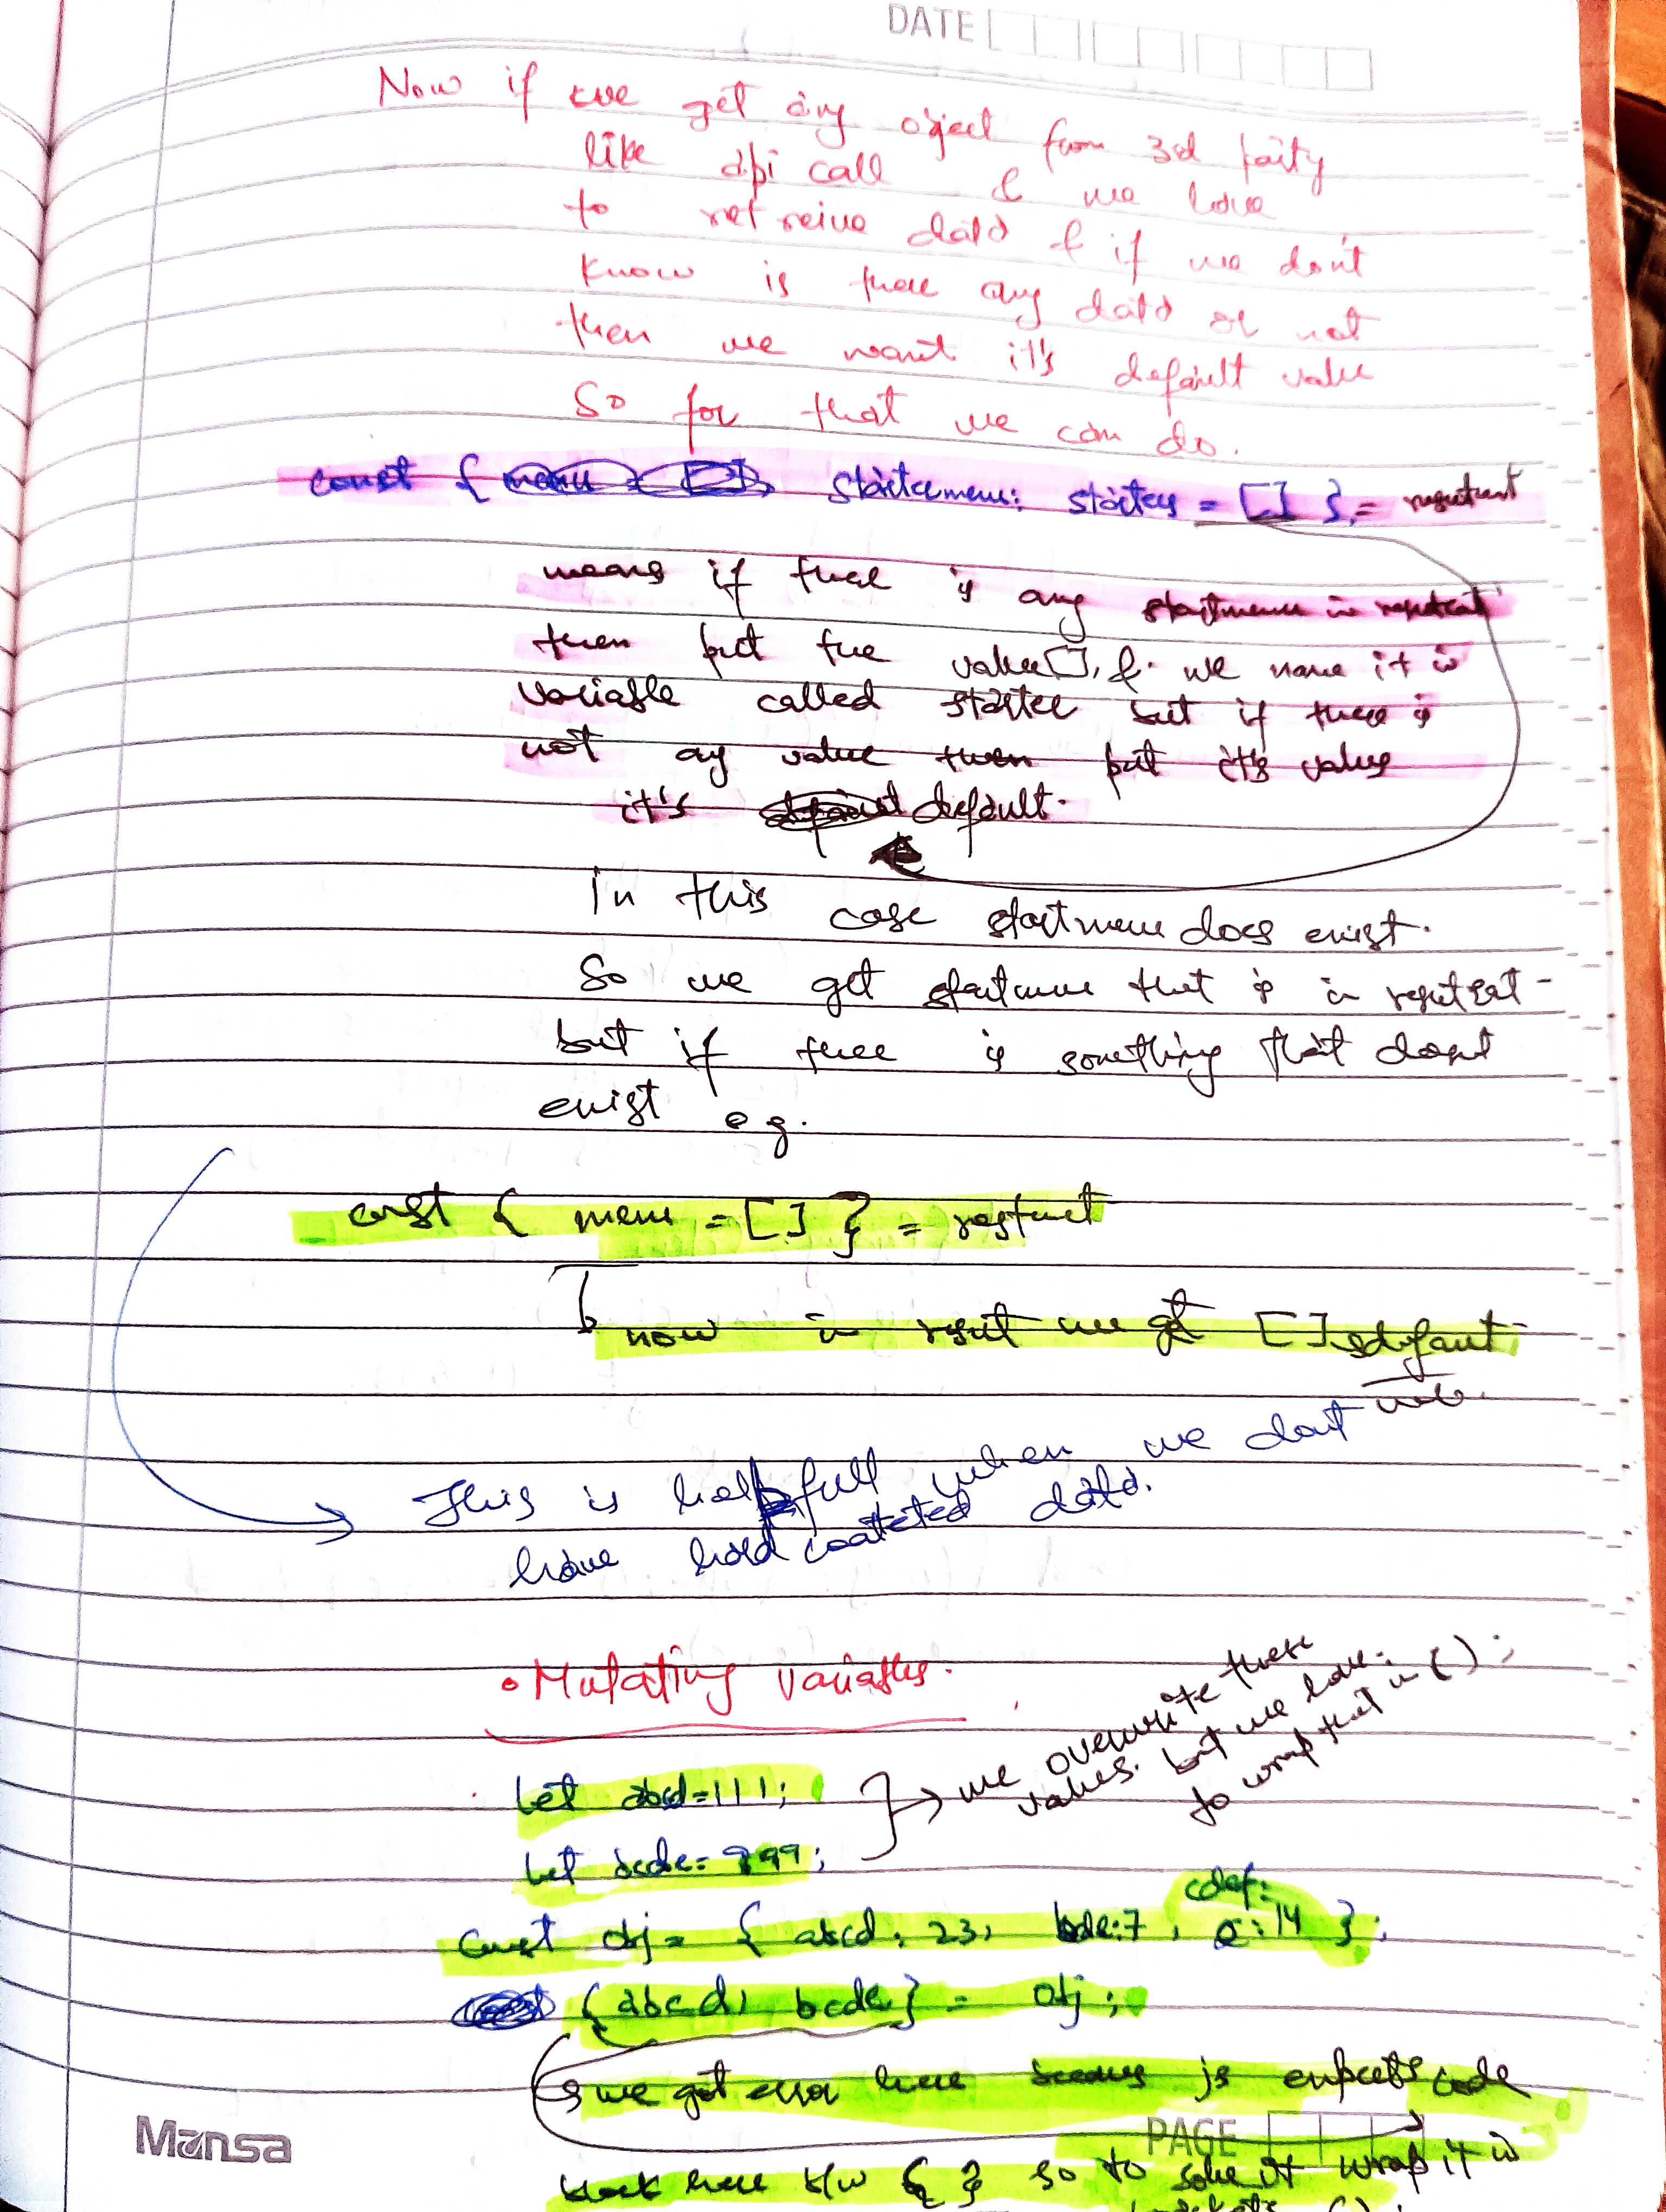 DATE
Now if we get any object from 3rd party
like api call & we have
to retreive data & if we don't
know is there any data or not
then we want it's default value
So for that we can do.
const { startermenu: starters = [] } =
means if there is any startmenu in
then put the value [], & we name it in
variable called starter but if there is
not any value then put it's value
it's default.
In this case startmenu does exist.
So we get startmenu that is in
but if there is something that dont
exist e.g.
const { menu = [] } =
now in we get [] default
value.
This is helpfull when we dont
have hard data.
• Mutating Variables.
we overwrite these
values. but we have
to wrap that in ( );
let abcd=111;
let bcde=999;
cdef:
const obj = { abcd: 23, bcde:7, c:14 };
{abcd, bcde} = obj;
we got error here because js expects code
block here b/w { } so to solve it wrap it in
PAGE
Mansa